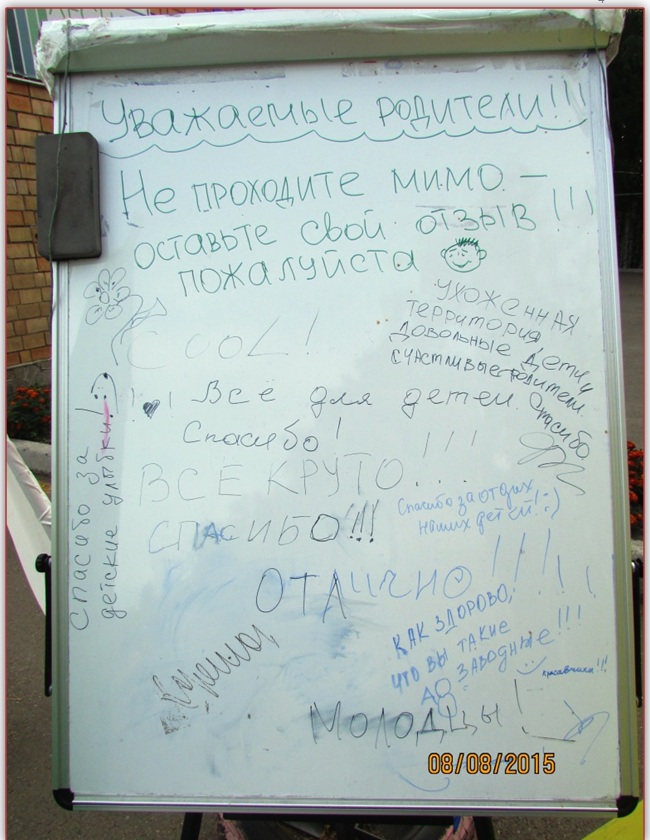 4
Уважаемые родители!!!
Не проходите мимо –
оставьте свой отзыв!!!
пожалуйста
УХОЖЕННАЯ
ТЕРРИТОРИЯ
ДОВОЛЬНЫЕ ДЕТИ И
СЧАСТЛИВЫЕ РОДИТЕЛИ
Спасибо
COOL!
Всё для детей
Спасибо!
спасибо за
детские улыбки!
ВСЕ КРУТО...!!!
СПАСИБО!!!
Спасибо за отдых
наших детей! :)
ОТЛИЧНО!!!!!
КАК ЗДОРОВО,
ЧТО ВЫ ТАКИЕ
ЗАВОДНЫЕ!!!
красавчики!!!
МОЛОДЦЫ!
08/08/2015